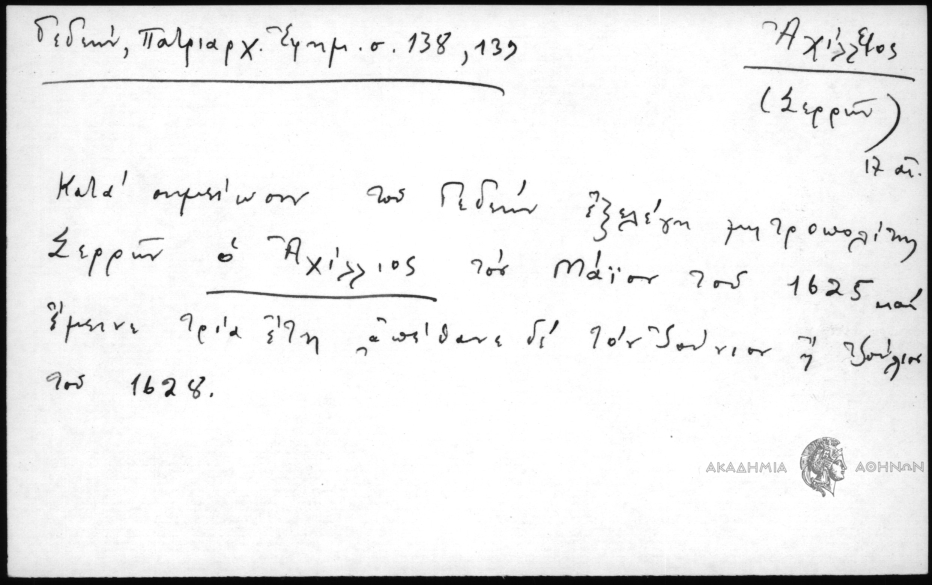 Γεδεών, Πατριαρχ. Ἐφημ. σ. 138, 139
Ἀχίλλειος
(Σερρῶν)
17 αἰ.
Κατά σημείωσιν τοῦ Γεδεών ἐξελέγη μητροπολίτης
Σερρῶν ὁ Ἀχίλλιος τόν Μάϊον τοῦ 1625 καί
ἔμεινε τρία ἔτη ἀπέθανε δέ τόν Ἰούνιον ἤ Ἰούλιον
τοῦ 1628.
ΑΚΑΔΗΜΙΑ ΑΘΗΝΩΝ